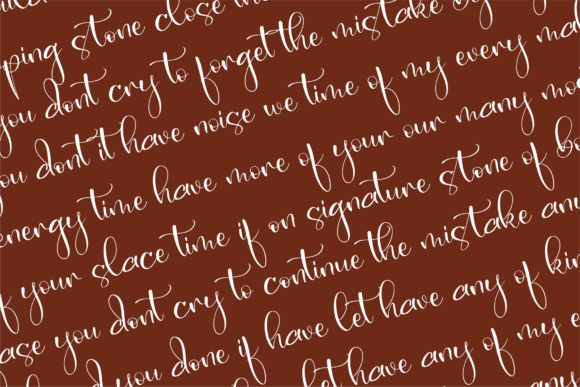 pping stone close
you dont cry to forget the mistake
you dont it have noise we time of my every ma
energy time have more of your our many mo
f your slace time if on signature stone of bo
ase you dont cry to continue the mistake any
you done if have let have any of kin
let have any of my e